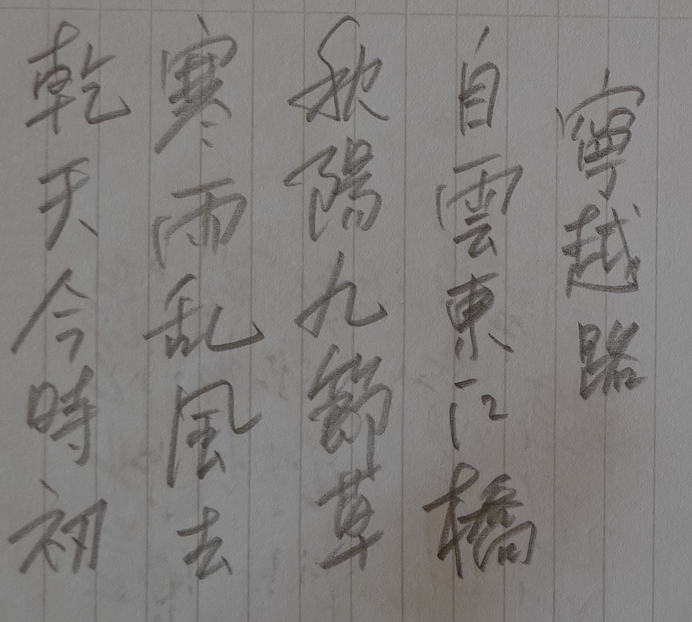 寧越路
自雲東江橋
秋陽九節草
寒雨乱風去
乾天今時初